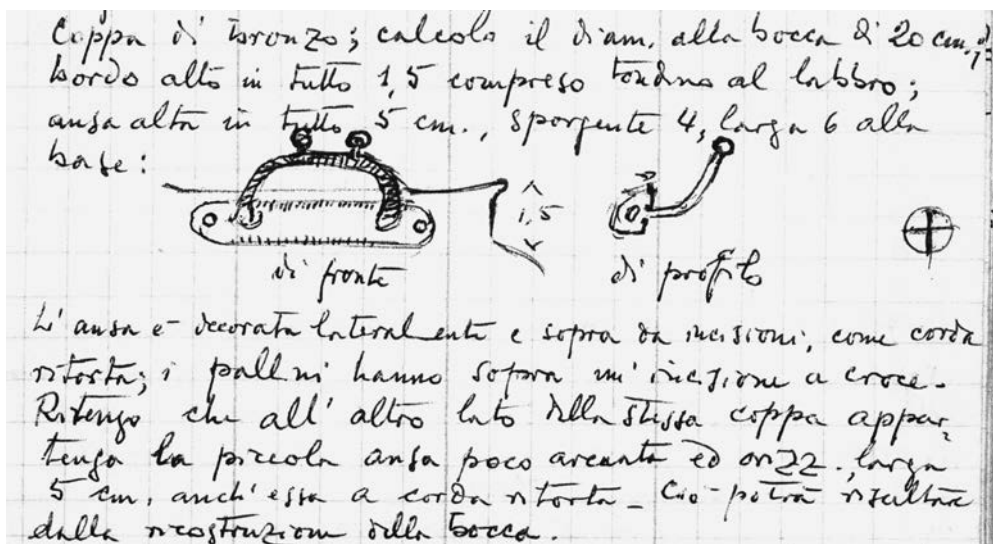 Coppa di bronzo; calcolo il diam. alla bocca di 20 cm.,
bordo alto in tutto 1,5 compreso tondino al labbro;
ansa alta in tutto 5 cm., sporgente 4, larga 6 alla
base:
1,5
di fronte
di profilo
L'ansa è decorata lateralmente e sopra da incisioni, come corda
ritorta; i pallini hanno sopra un' incisione a croce.
Ritengo che all' altro lato della stessa coppa appar-
tenga la piccola ansa poco arcuata ed orizz. larga
5 cm. anch' essa a corda ritorta - Ciò potrà risultare
dalla ricostruzione della bocca.